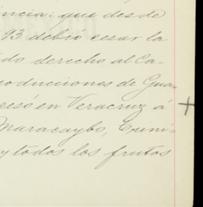 ncia: que desde
93 debió cesar la
do derecho al Ca-
oducciones de Gua-
esó en Veracruz á
Maracaybo, Cumi-
y todos los frutos